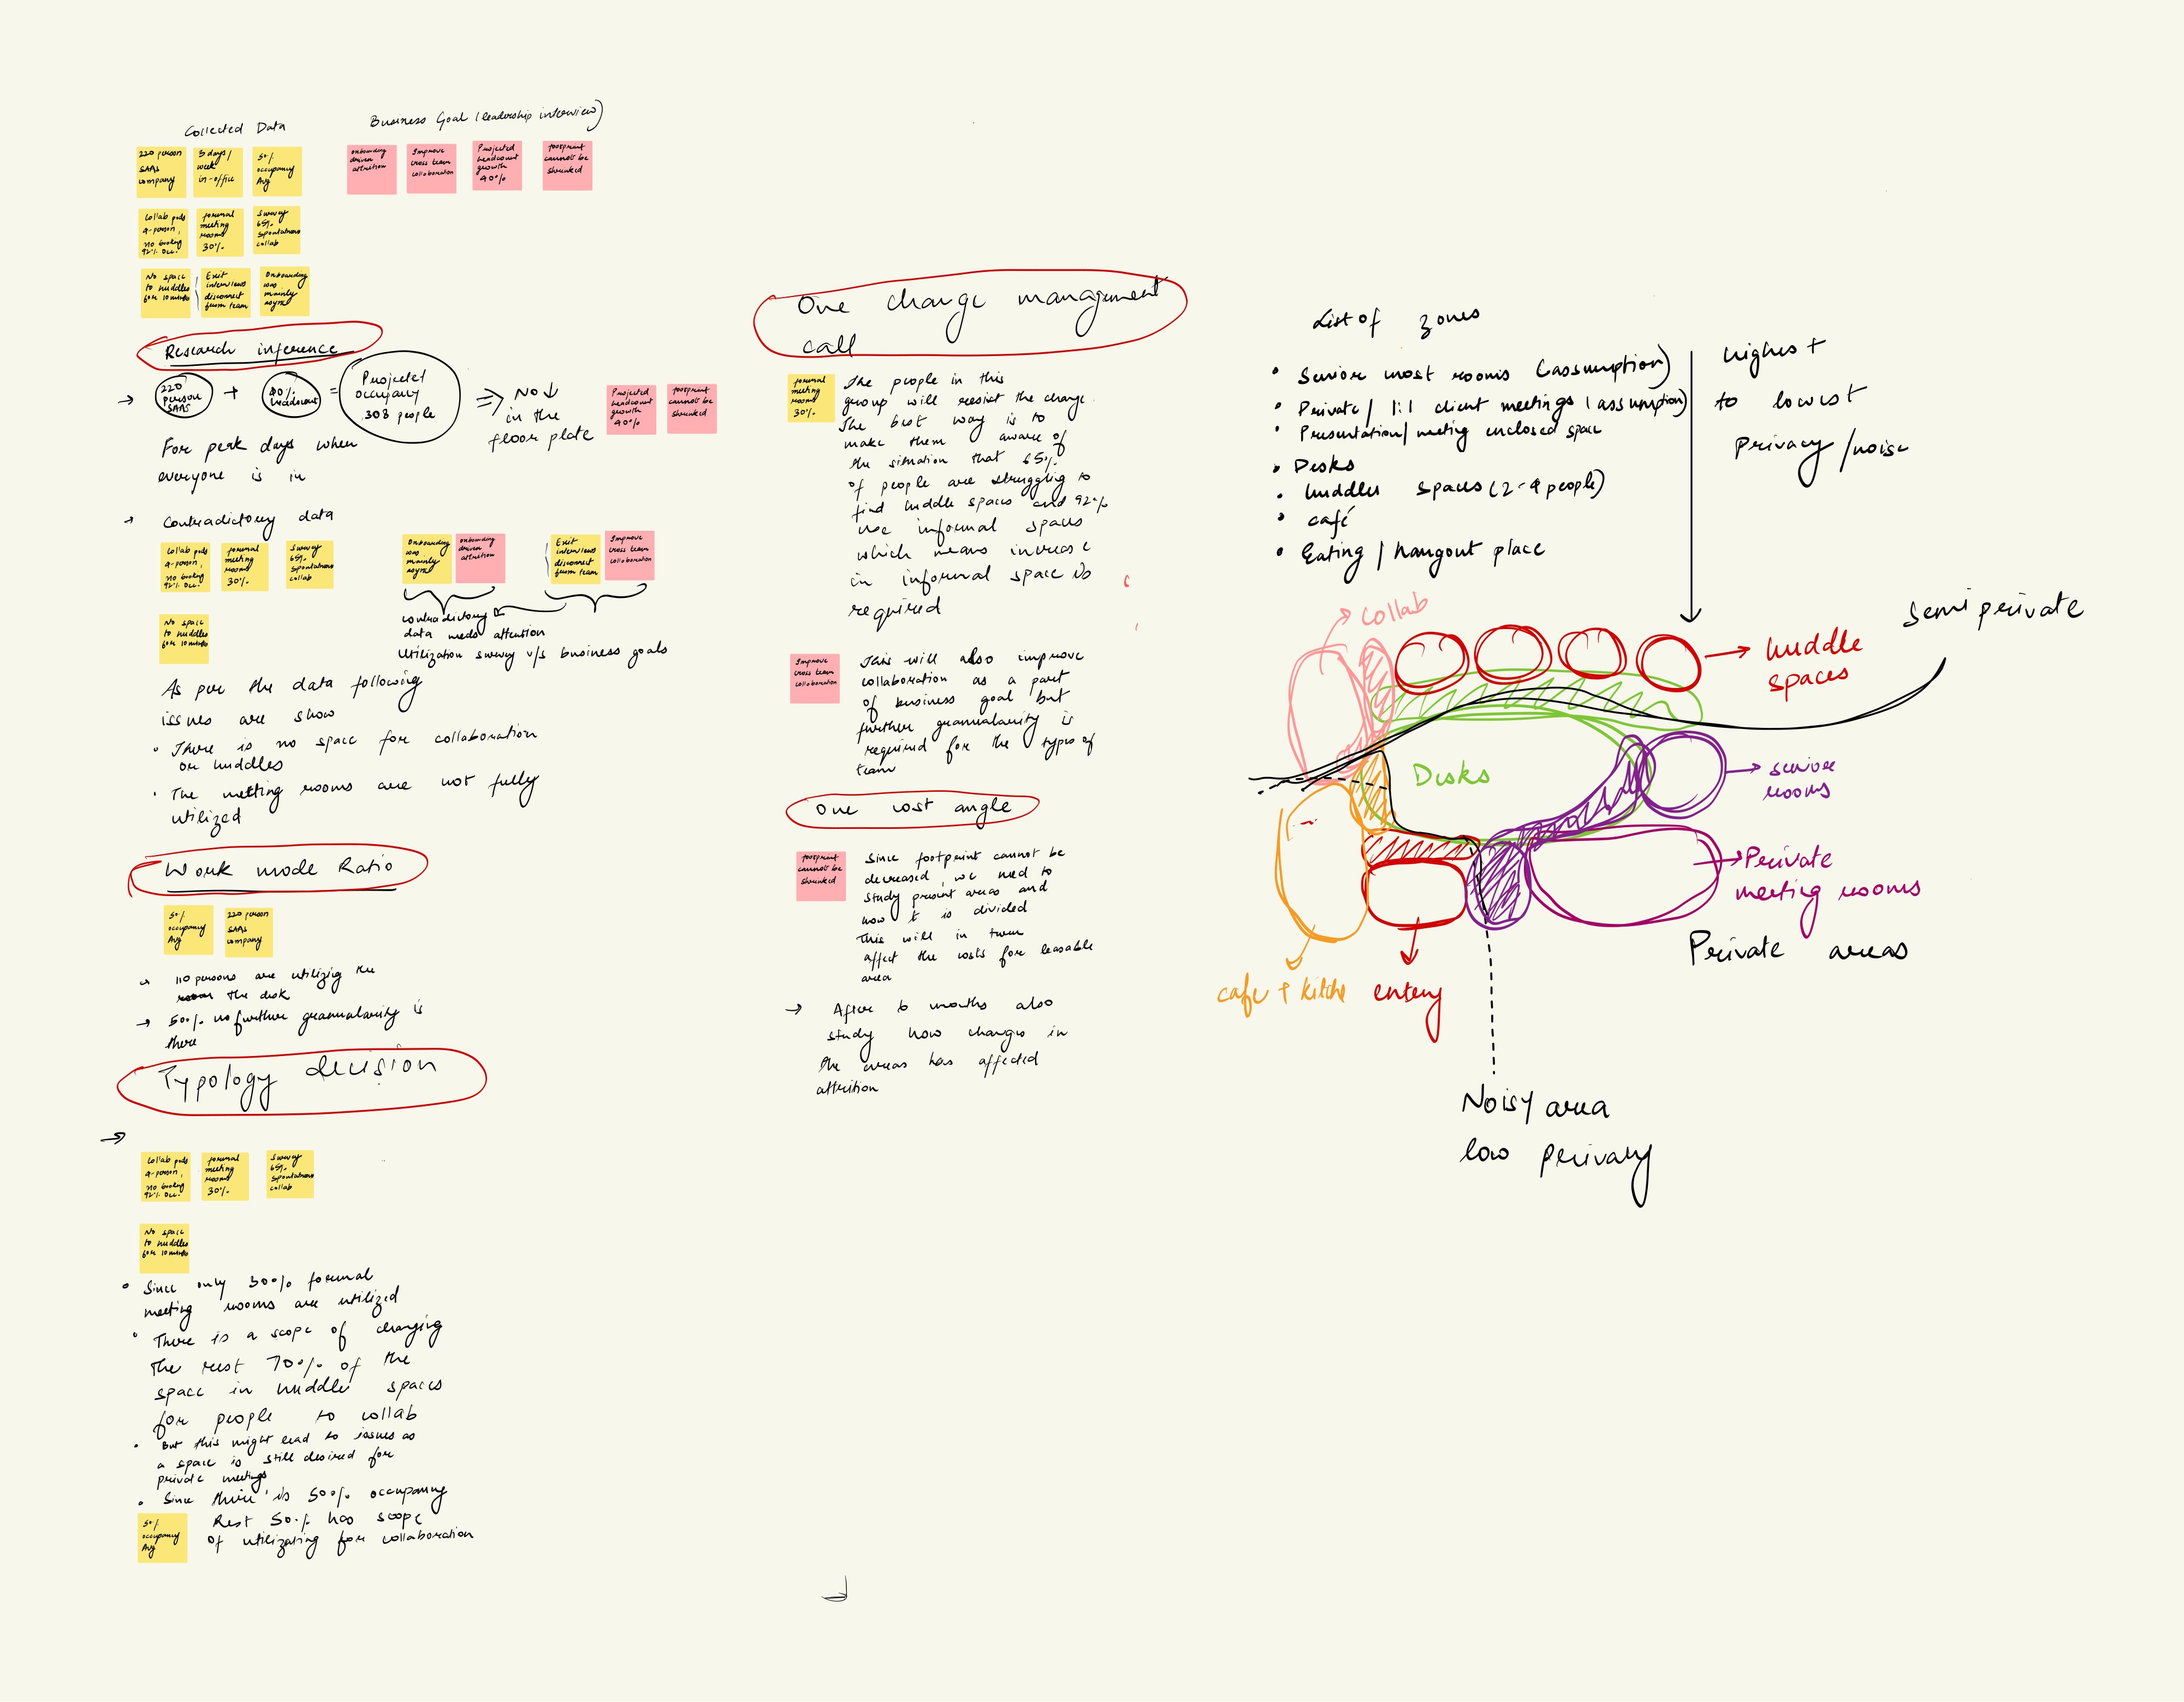 Collected Data
220 person
SAAS
company
3 days/
week
in-office
50%
occupancy
Avg
Collab pods
4-person,
no booking
92% Occ.
formal
meeting
rooms
30%
Survey
65%
spontaneous
collab
No space
to huddles
for 10 minutes
Exit
interviews
disconnect
from team
Onboarding
was
mainly
async
Business Goal (leadership interview)
onboarding
driven
attrition
Improve
cross team
collaboration
Projected
headcount
growth
40%
footprint
cannot be
shrinked
Research inference
→ 220
person
SAAS
+
40%
headcount
=
Projected
occupany
308 people
⇒ NO ↓
in the
floor plate
Projected
headcount
growth
40%
footprint
cannot be
shrinked
For peak days when
everyone is in
→ Contradictory data
Collab pods
4-person,
no booking
92% Occ.
formal
meeting
rooms
30%
Survey
65%
spontaneous
collab
No space
to huddles
for 10 minutes
Onboarding
was
mainly
async
onboarding
driven
attrition
Exit
interviews
disconnect
from team
Improve
cross team
collaboration
contradictory
data needs attention
Utilization survey v/s business goals
As per the data following
issues are show
• There is no space for collaboration
or huddles
• The meeting rooms are not fully
utilized
Work mode Ratio
50%
occupancy
Avg
220 person
SAAS
company
→ 110 persons are utilizig the
the desk
→ 50% no further granualarity is
there
Typology decision
→
Collab pods
4-person,
no booking
92% Occ.
formal
meeting
rooms
30%
Survey
65%
spontaneous
collab
No space
to huddles
for 10 minutes
• Since only 30% formal
meeting rooms are utilized
• There is a scope of changing
the rest 70% of the
space in huddle spaces
for people to collab
• But this might lead to issues as
a space is still desired for
private meetings
• Since there is 50% occupany
50%
occupancy
Avg
Rest 50% has scope
of utilizating for collaboration
One change management
call
formal
meeting
rooms
30%
The people in this
group will resist the change.
The best way is to
make them aware of
the situation that 65%
of people are struggling to
find huddle spaces and 92%
use informal spaces
which means increase
in informal space is
required
Improve
cross team
collaboration
This will also improve
collaboration as a part
of business goal but
further granualarity is
required for the types of
team
One cost angle
footprint
cannot be
shrinked
Since footprint cannot be
decreased, we need to
study present areas and
how it is divided
This will in turn
affect the costs for leasable
area
→ After 6 months also
study how changes in
the areas has affected
attrition
List of zones
• Senior most rooms (assumption)
• Private / 1:1 client meetings (assumption)
• Presentation/ meeting enclosed space
• Desks
• huddles spaces (2-4 people)
• café
• Eating / hangout place
highest
to lowest
privacy /noise
Semi private
collab
huddle
spaces
Desks
senior
rooms
Private
meeting rooms
Private areas
cafe + kitche
entery
Noisy area
low privacy